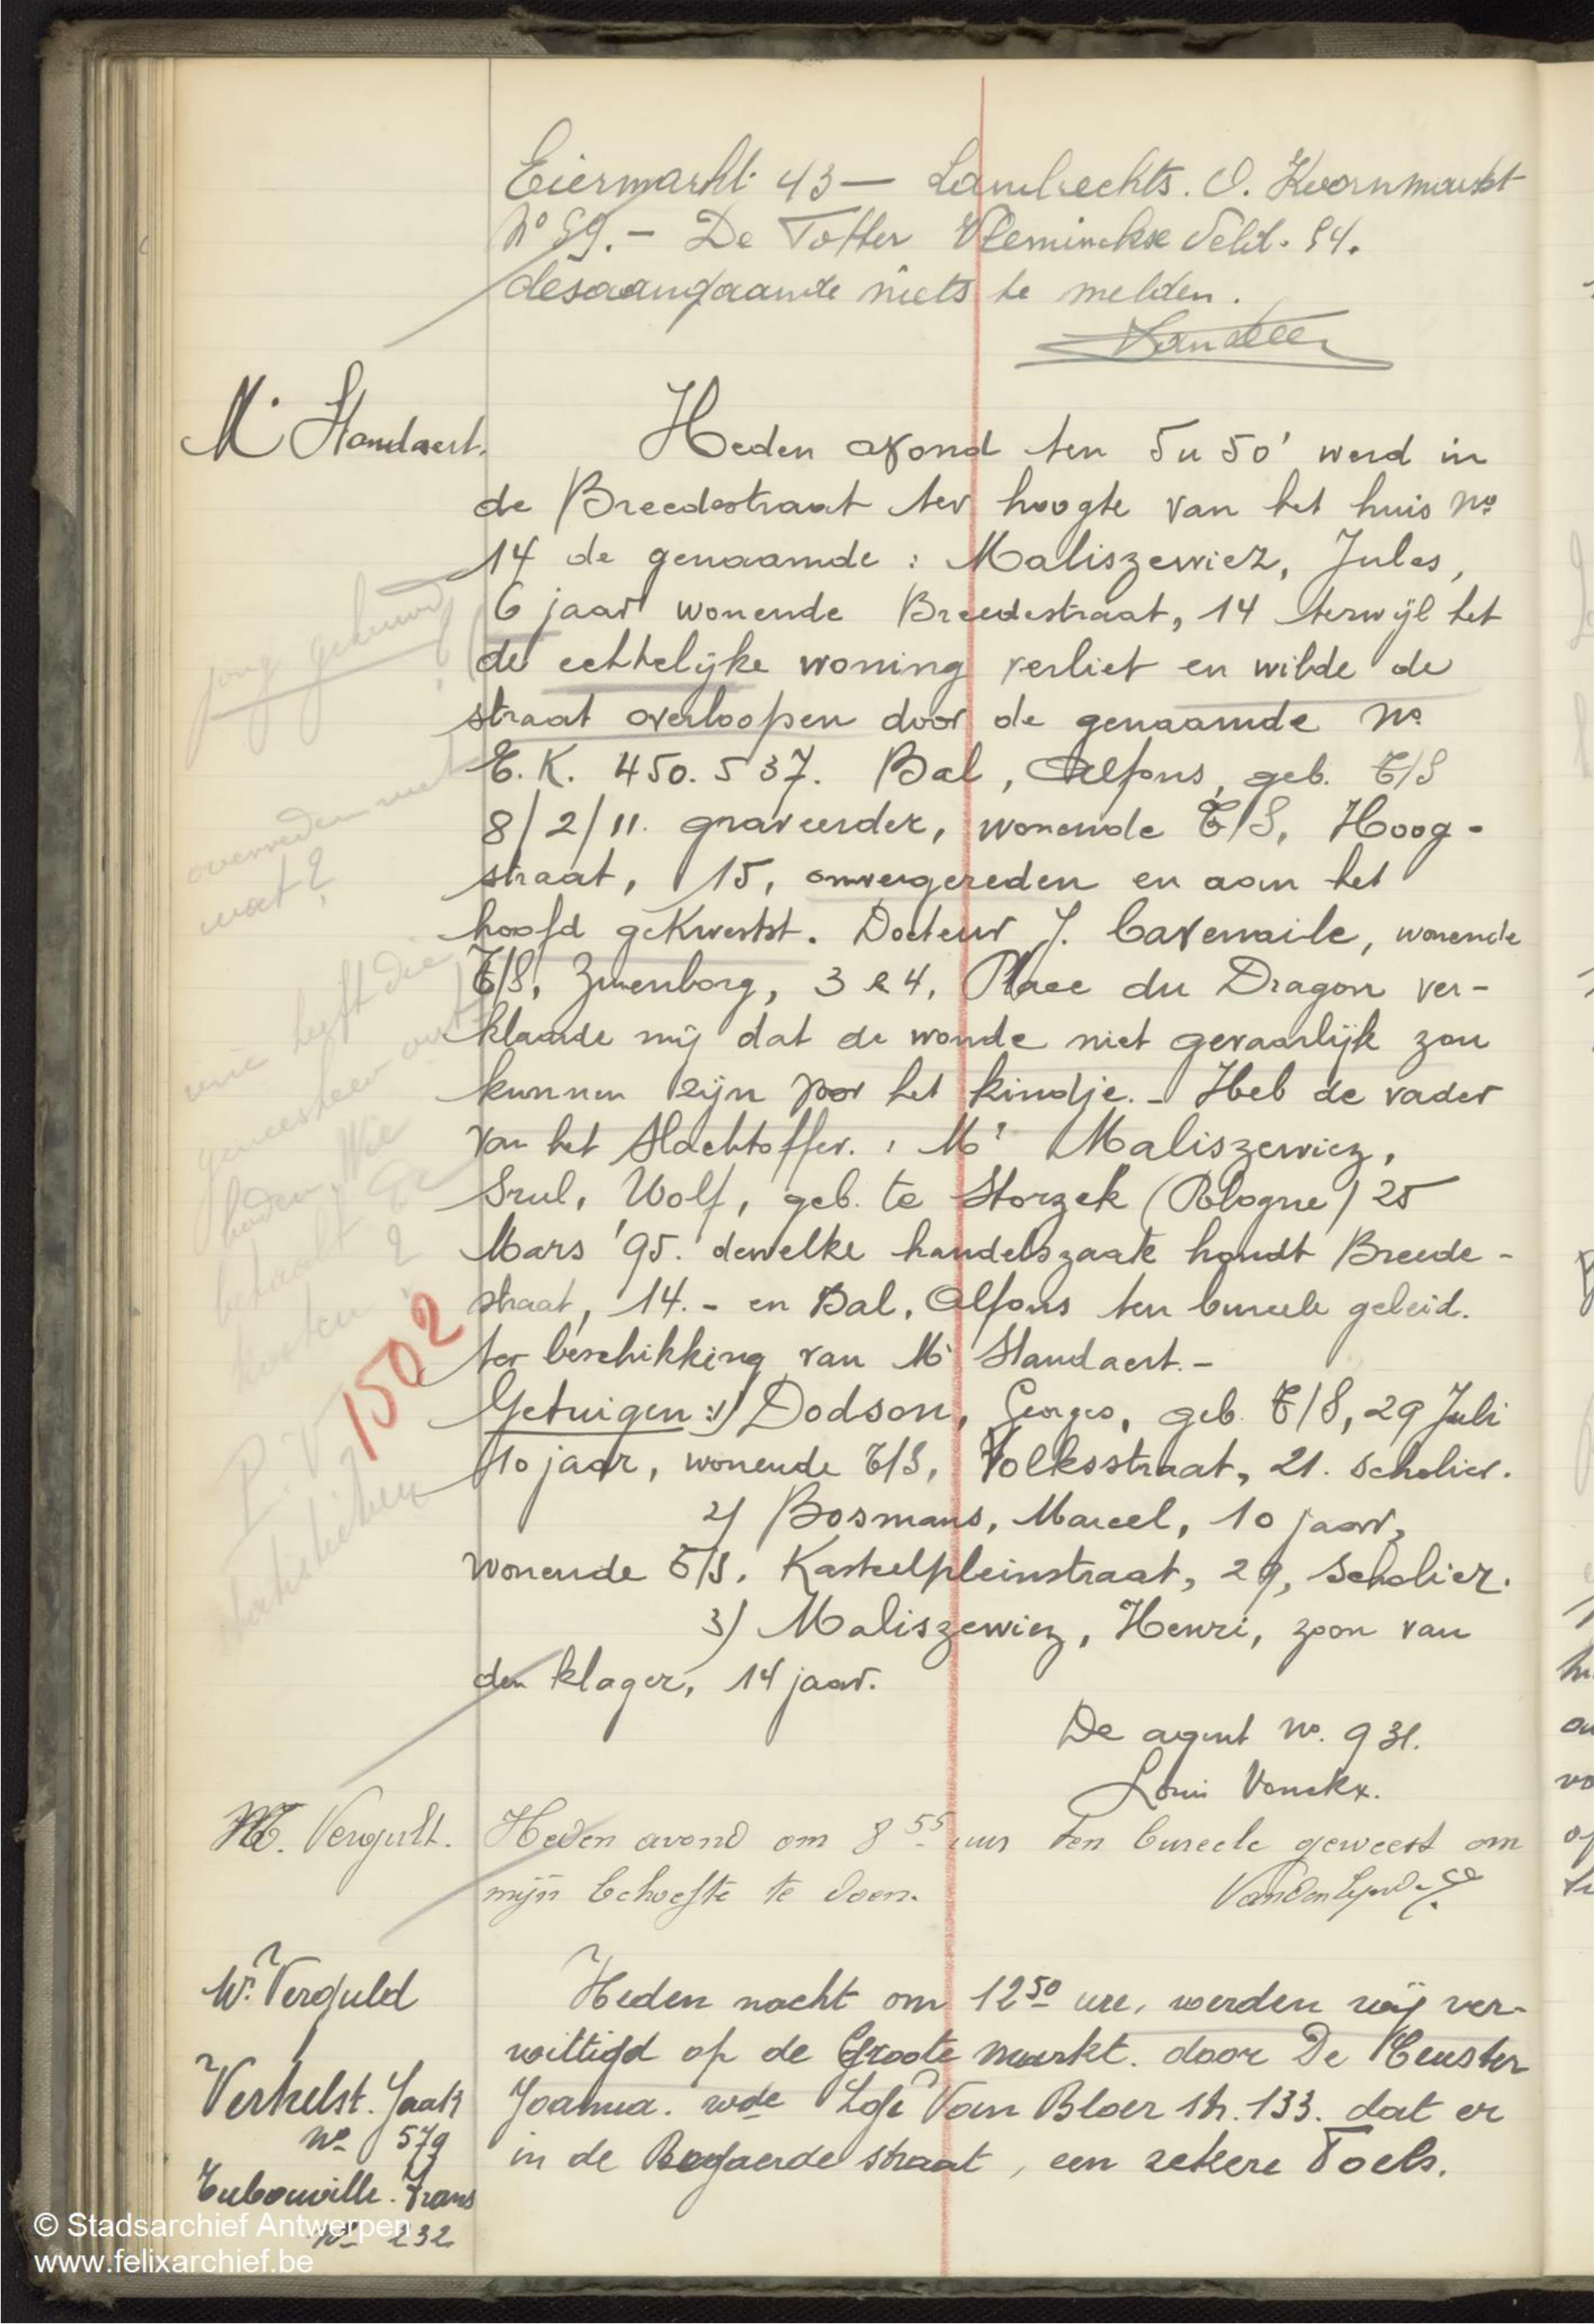 Eiermarkt 43 — Lambrechts. O. Koornmarkt
No 59. — De Totter Vleminckxe Veld. 54.
desaangaande niets te melden.
Mr Standaert.
Heden avond ten 5 u 50' werd in
de Breedestraat ter hoogte van het huis No
14 de genaamde : Maliszewiez, Jules,
6 jaar wonende Breedestraat, 14 terwijl het
de echtelijke woning verliet en wilde de
straat overloopen door de genaamde No
E.K. 450.537. Bal, Alfons, geb. T/S
8/2/11. graveerder, wonende T/S, Hoog-
straat, 15, omvergereden en aan het
hoofd gekwetst. Docteur J. Cavenaile, wonende
T/S, Zurenborg, 3 & 4, Place du Dragon ver-
klaarde mij dat de wonde niet gevaarlijk zou
kunnen zijn voor het kindje. - Heb de vader
van het Slachtoffer. : Mr Maliszewiez,
Srul, Wolf, geb. te Storzek (Pologne) 25
Mars '95. dewelke handelszaak houdt Breede-
straat, 14. - en Bal, Alfons ten bureele geleid.
ter beschikking van Mr Standaert. -
Getuigen : 1) Dodson, Georges, geb. T/S, 29 Juli
10 jaar, wonende T/S, Volksstraat, 21. scholier.
2) Bosmans, Marcel, 10 jaar,
wonende T/S. Kasteelpleinstraat, 29, Scholier.
3) Maliszewiez, Henri, zoon van
den klager, 14 jaar.
De agent No. 931.
Louis Vonckx.
jong gekuurd
overreden met
wat?
wie heeft die
geneesheer
Wie
betaalt de
kosten?
P.V.
1502
M. Vergult.
Heden avond om 8 55 uur ten bureele geweest om
mijn behoefte te doen.
Mr. Verguld
Heden nacht om 12 50 ure, werden wij ver-
wittigd op de Groote Markt. door De Ceuster
Joanna. wde Van Bloer str. 133. dat er
in de Bogaerde straat, een zekere Toels.
Verhelst. Jaak
No 579
Frans
No 232
© Stadsarchief Antwerpen
www.felixarchief.be